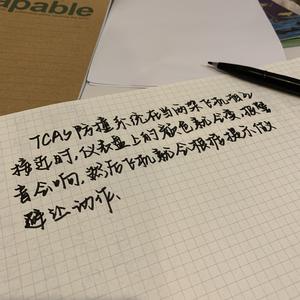 capable
TCAS防撞系统在当两架飞机相互
接近时,仪表盘上的颜色就会变,报警
音会响,然后飞机就会根据提示做
避让动作、